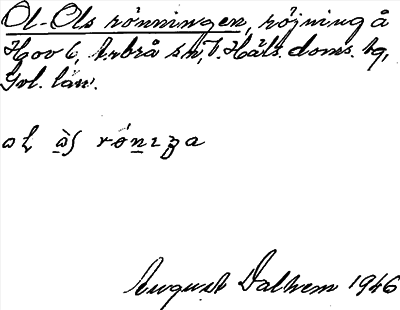 Ol-Ols rönningen, röjning å
Hov 6, Arbrå sn, V. Häls. doms. hg,
Gvl. län.
August Dalhem 1946